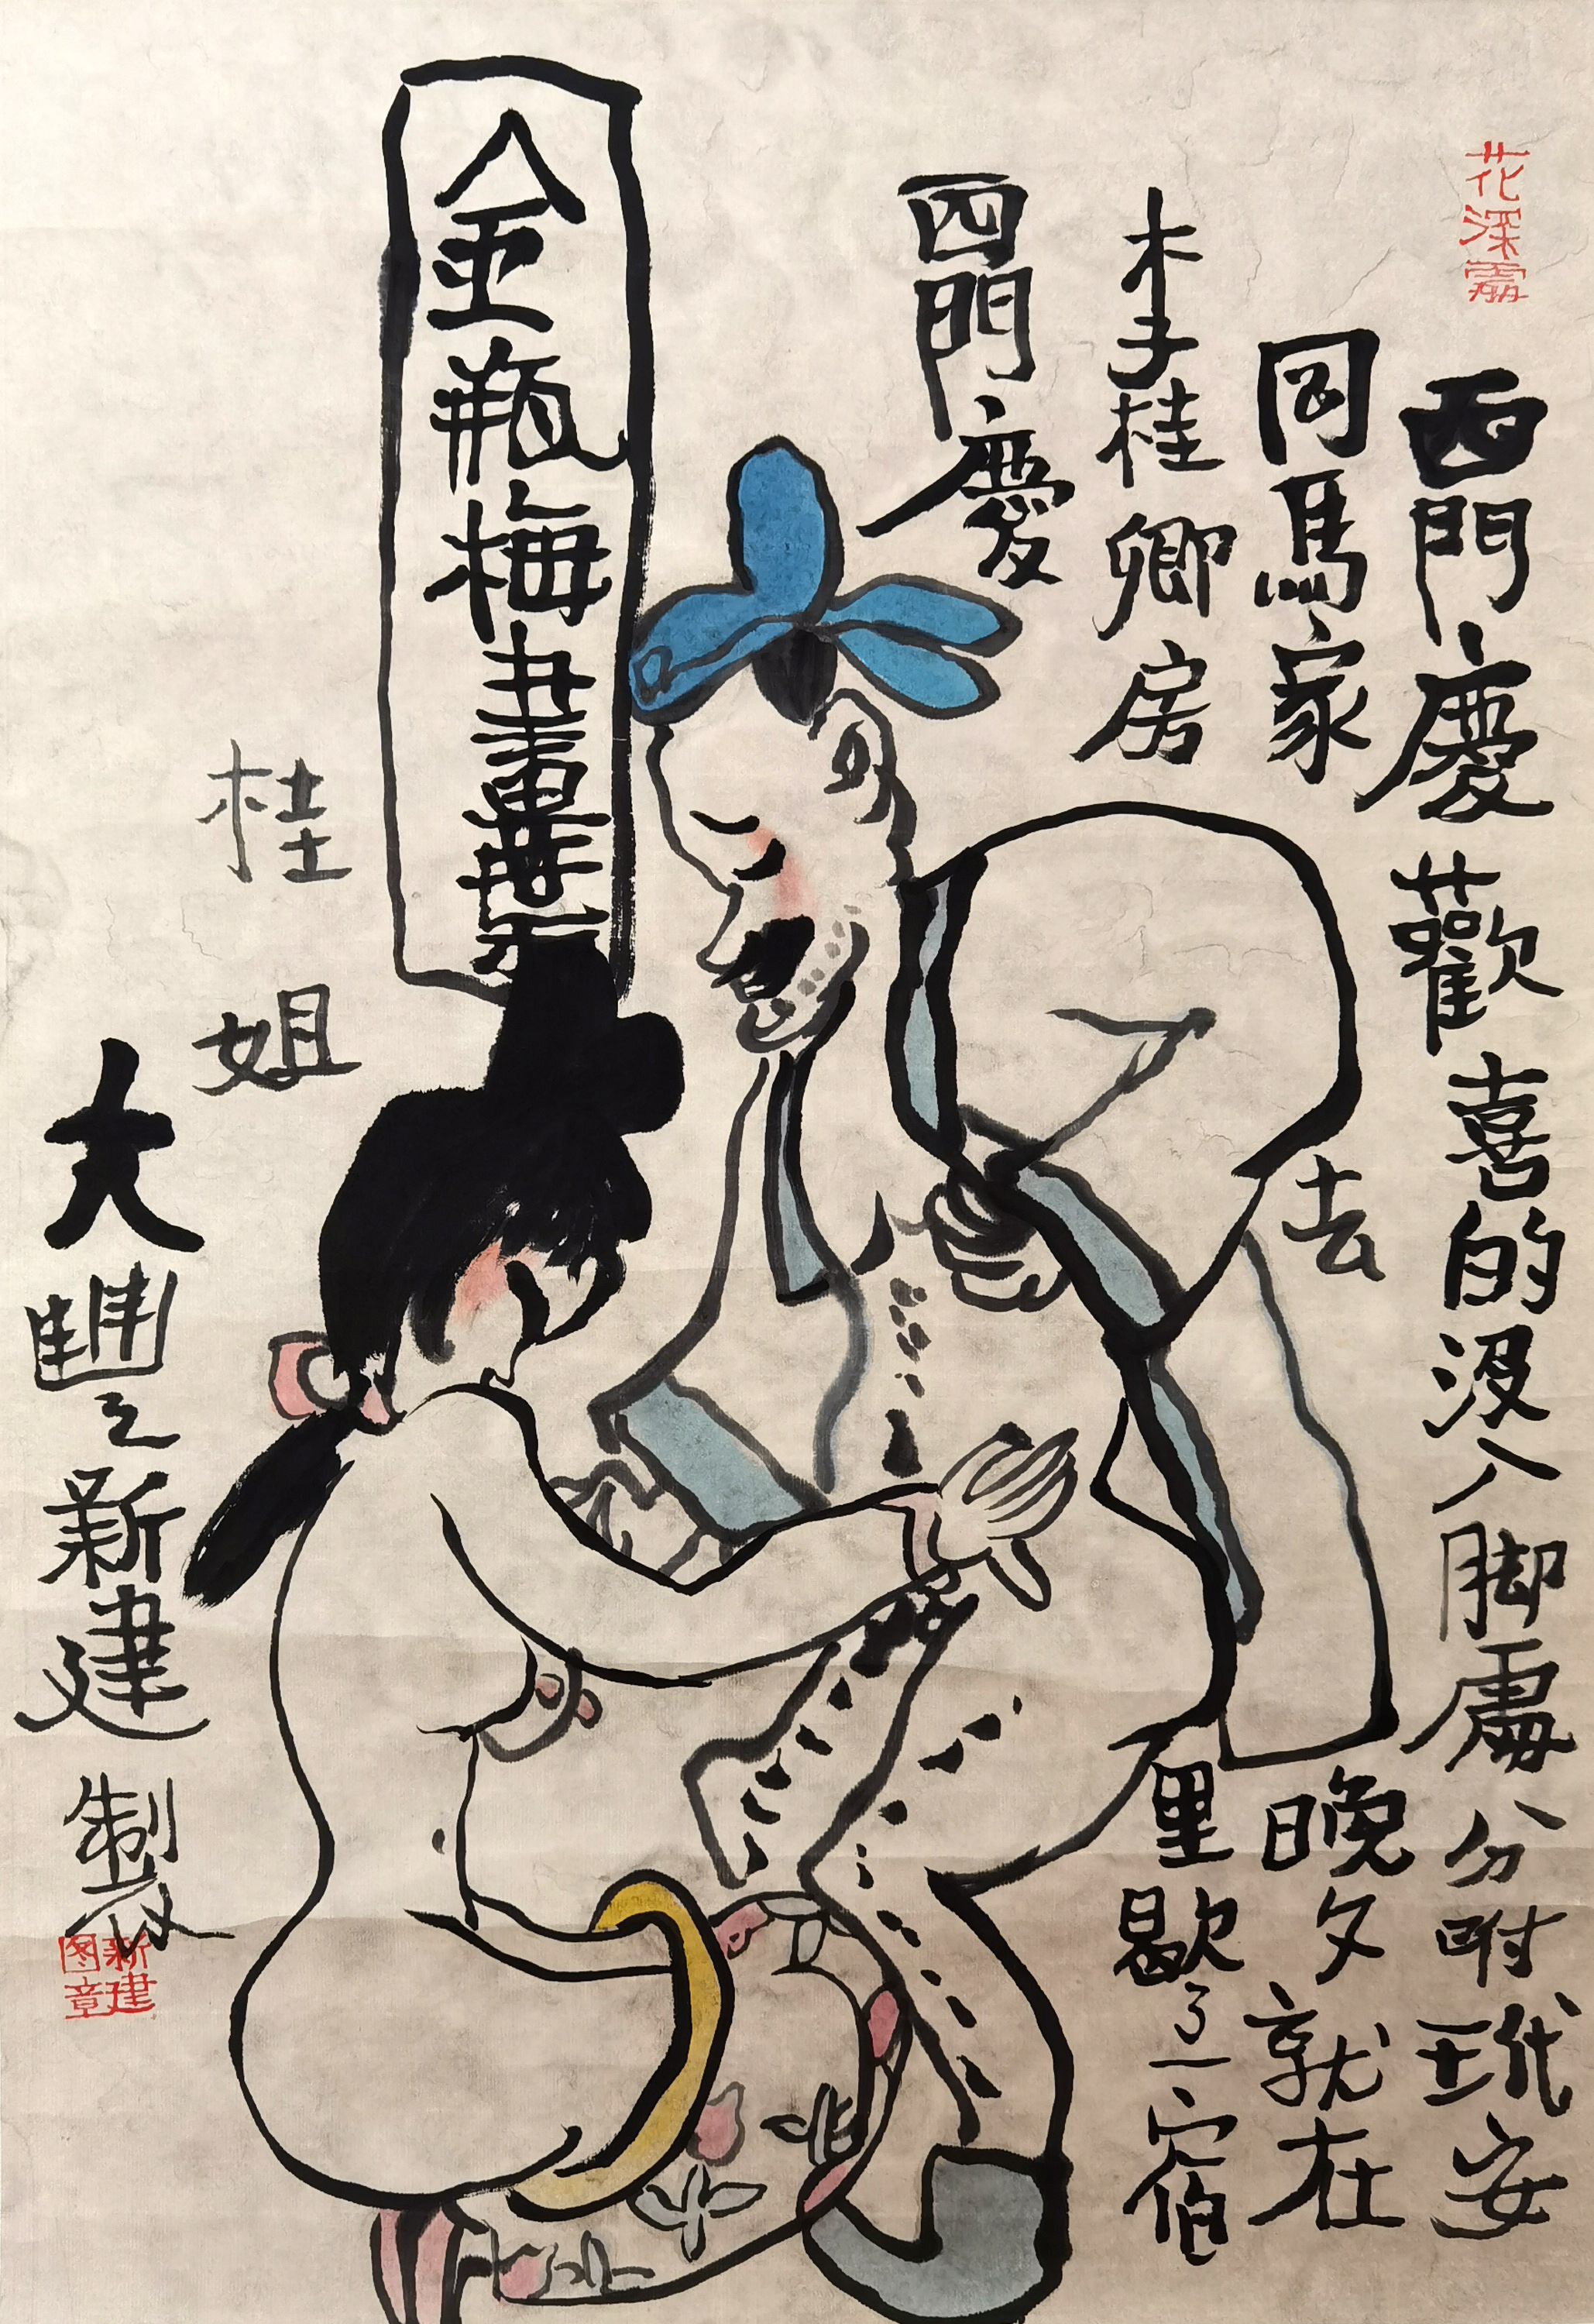 花深處
西門慶歡喜的没入脚處分咐玳安
同馬家去晚夕就在
李桂卿房里歇了一宿
西門慶
金瓶梅畫册
桂姐
大豐之新建製
新建图章